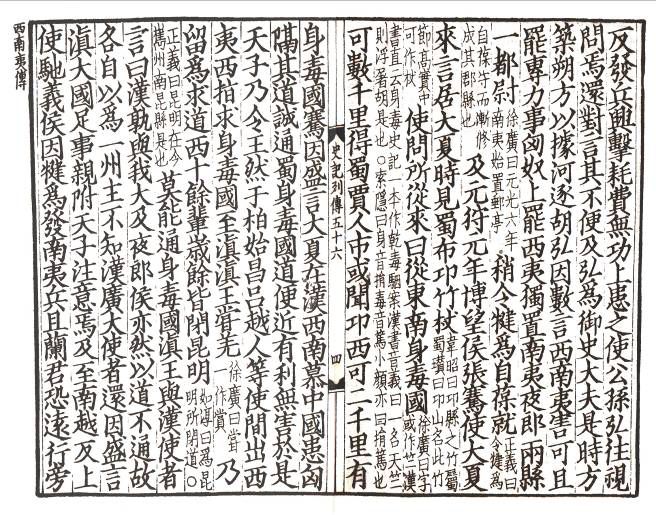 反發兵興擊耗費無功上患之使公孫弘往視
問焉還對言其不便及弘爲御史大夫是時方
築朔方以據河逐胡弘因數言西南夷害可且
罷專力事匈奴上罷西夷獨置南夷夜郎兩縣
一都尉徐廣曰元光六年南夷始置郵亭稍令犍爲自葆就正義曰令犍爲
自葆守而漸修成其郡縣也及元狩元年博望侯張騫使大夏
來言居大夏時見蜀布卭竹杖韋昭曰卭縣之竹屬蜀瓚曰卭山名此竹
節高實中可作杖使問所從來曰從東南身毒國徐廣曰字或作竺漢
書直云身毒史記一本作乾毒駰案漢書音義曰一名天竺則浮屠胡是也○索隱曰身音捐毒音篤小顏亦曰捐篤也
可數千里得蜀賈人市或聞卭西可二千里有
史記列傳五十六
四
身毒國騫因盛言大夏在漢西南慕中國患匈
隔其道誠通蜀身毒國道便近有利無害於是
天子乃令王然于柏始昌呂越人等使間出西
夷西指求身毒國至滇滇王嘗羌徐廣曰嘗一作賞乃
留爲求道西十餘輩歲餘皆閉昆明如淳曰爲昆明所閉道○
正義曰昆明在今巂州南昆縣是也莫能通身毒國滇王與漢使者
言曰漢孰與我大及夜郎侯亦然以道不通故
各自以爲一州主不知漢廣大使者還因盛言
滇大國足事親附天子注意焉及至南越反上
使馳義侯因犍爲發南夷兵且蘭君恐遠行旁
西南夷傳